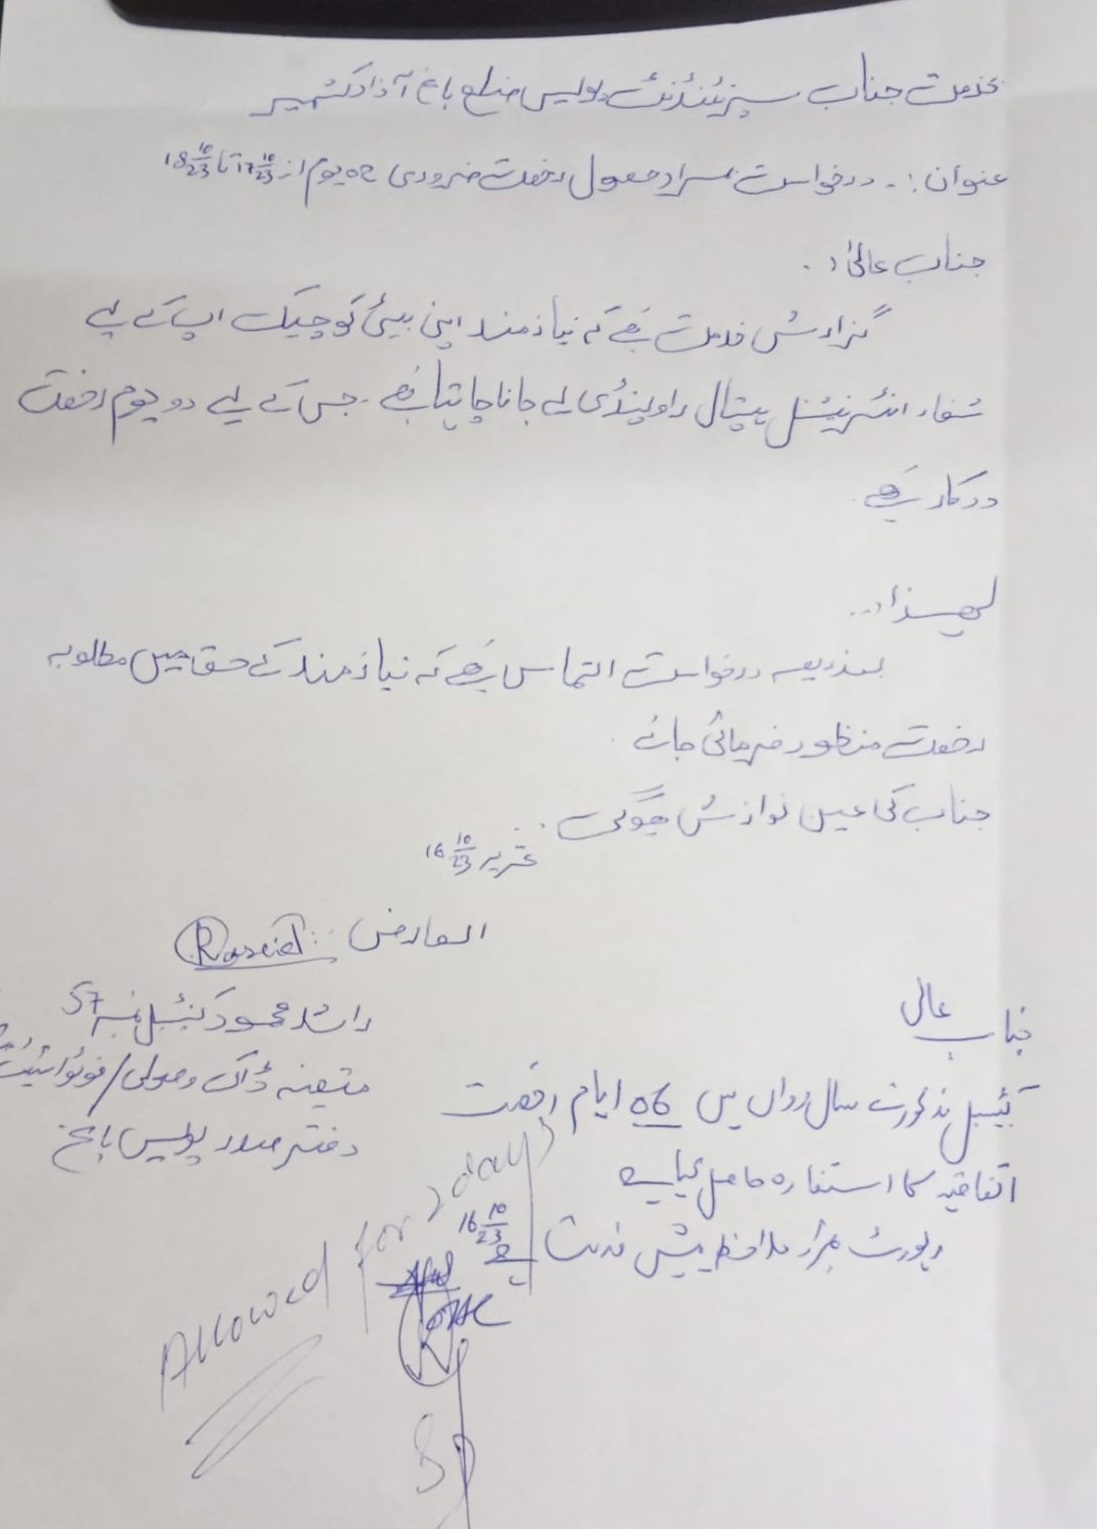 بخدمت جناب سپرنٹنڈنٹ پولیس ضلع باغ آزاد کشمیر
عنوان:۔ درخواست بمراد حصول رخصت ضروری 02 یوم از 17 10/23 تا 18 10/23
جناب عالیٰ!۔
گزارش خدمت ہے کہ نیازمند اپنی بیٹی کو چیک اپ کے لیے
شفاء انٹرنیشنل ہسپتال راولپنڈی لے جانا چاہتا ہے۔ جس کے لیے دو یوم رخصت
درکار ہے۔
لہٰذا۔۔
بذریعہ درخواست التماس ہے کہ نیازمند کے حق میں مطلوبہ
رخصت منظور فرمائی جائے
جناب کی عین نوازش ہوگی۔
تحریر 16 10/23
العارض: Rasid
راشد محمود کنسٹیبل نمبر 57
متعینہ ڈاک وصولی/فوٹواسٹیٹ
دفتر صدر پولیس باغ
جناب عالی
کنسٹیبل مذکور نے سال رواں میں 06 ایام رخصت
اتفاقیہ کا استفادہ حاصل کیا ہے
رپورٹ ہذا ملاحظہ پیش خدمت ہے
16 10/23
OHC
Allowed for 2 days
SP